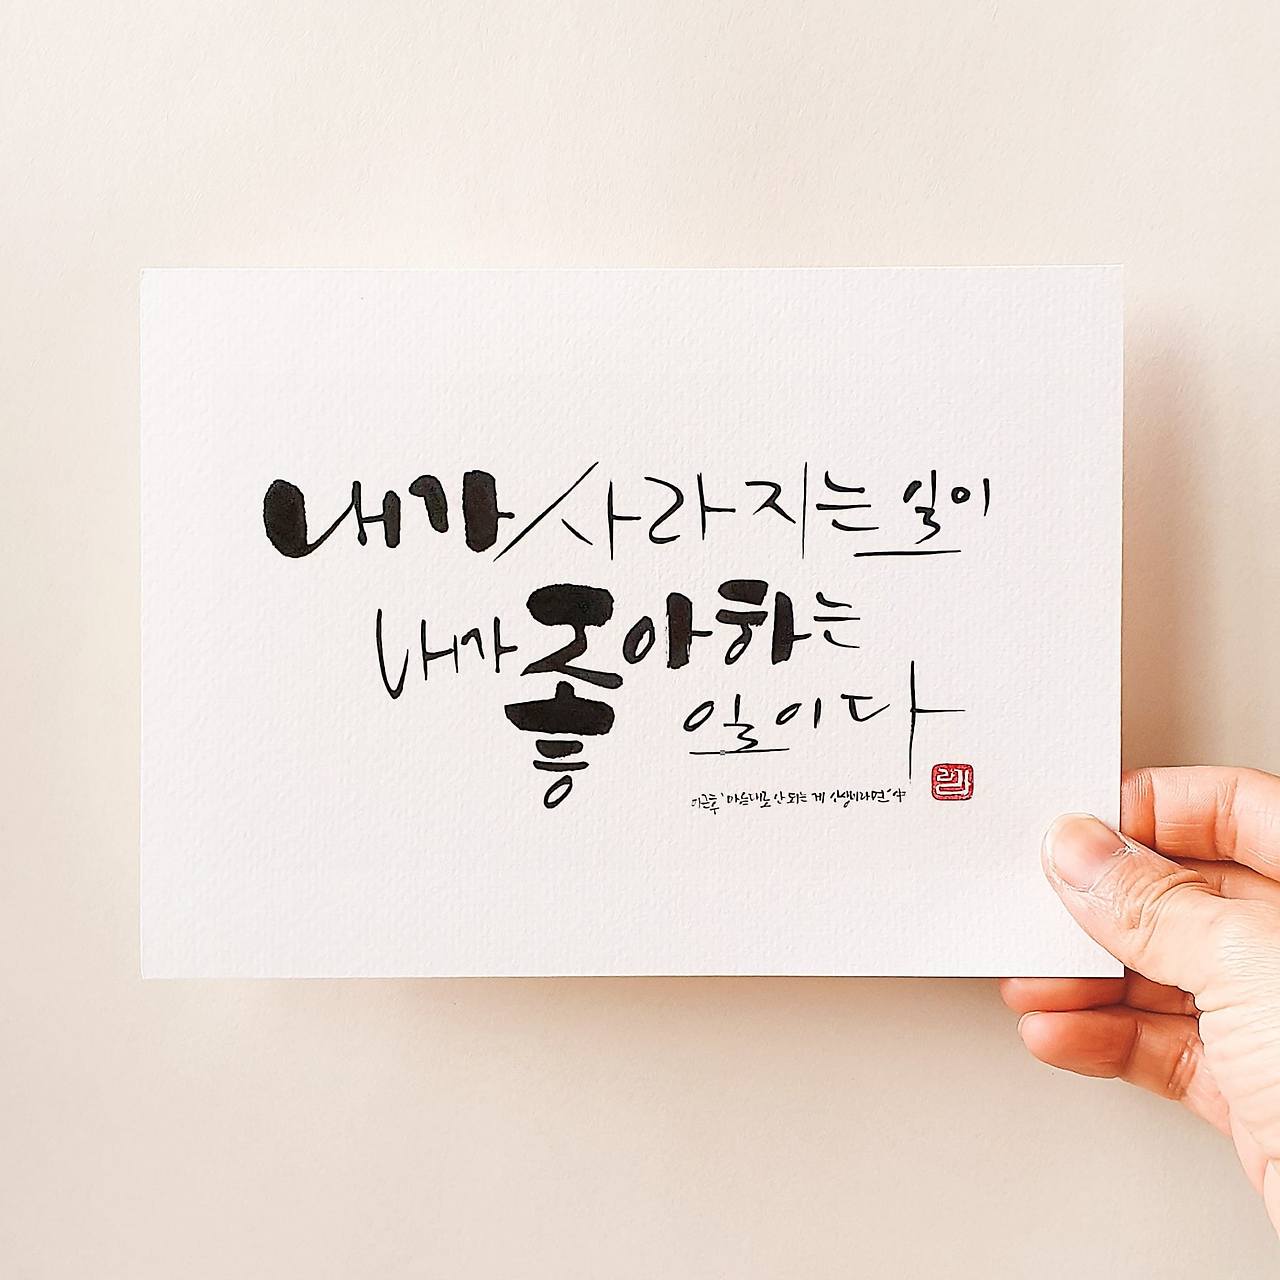 내가 사라지는 일이
내가 좋아하는
일이다
이근후 '마음대로 안 되는 게 인생이라면' 中